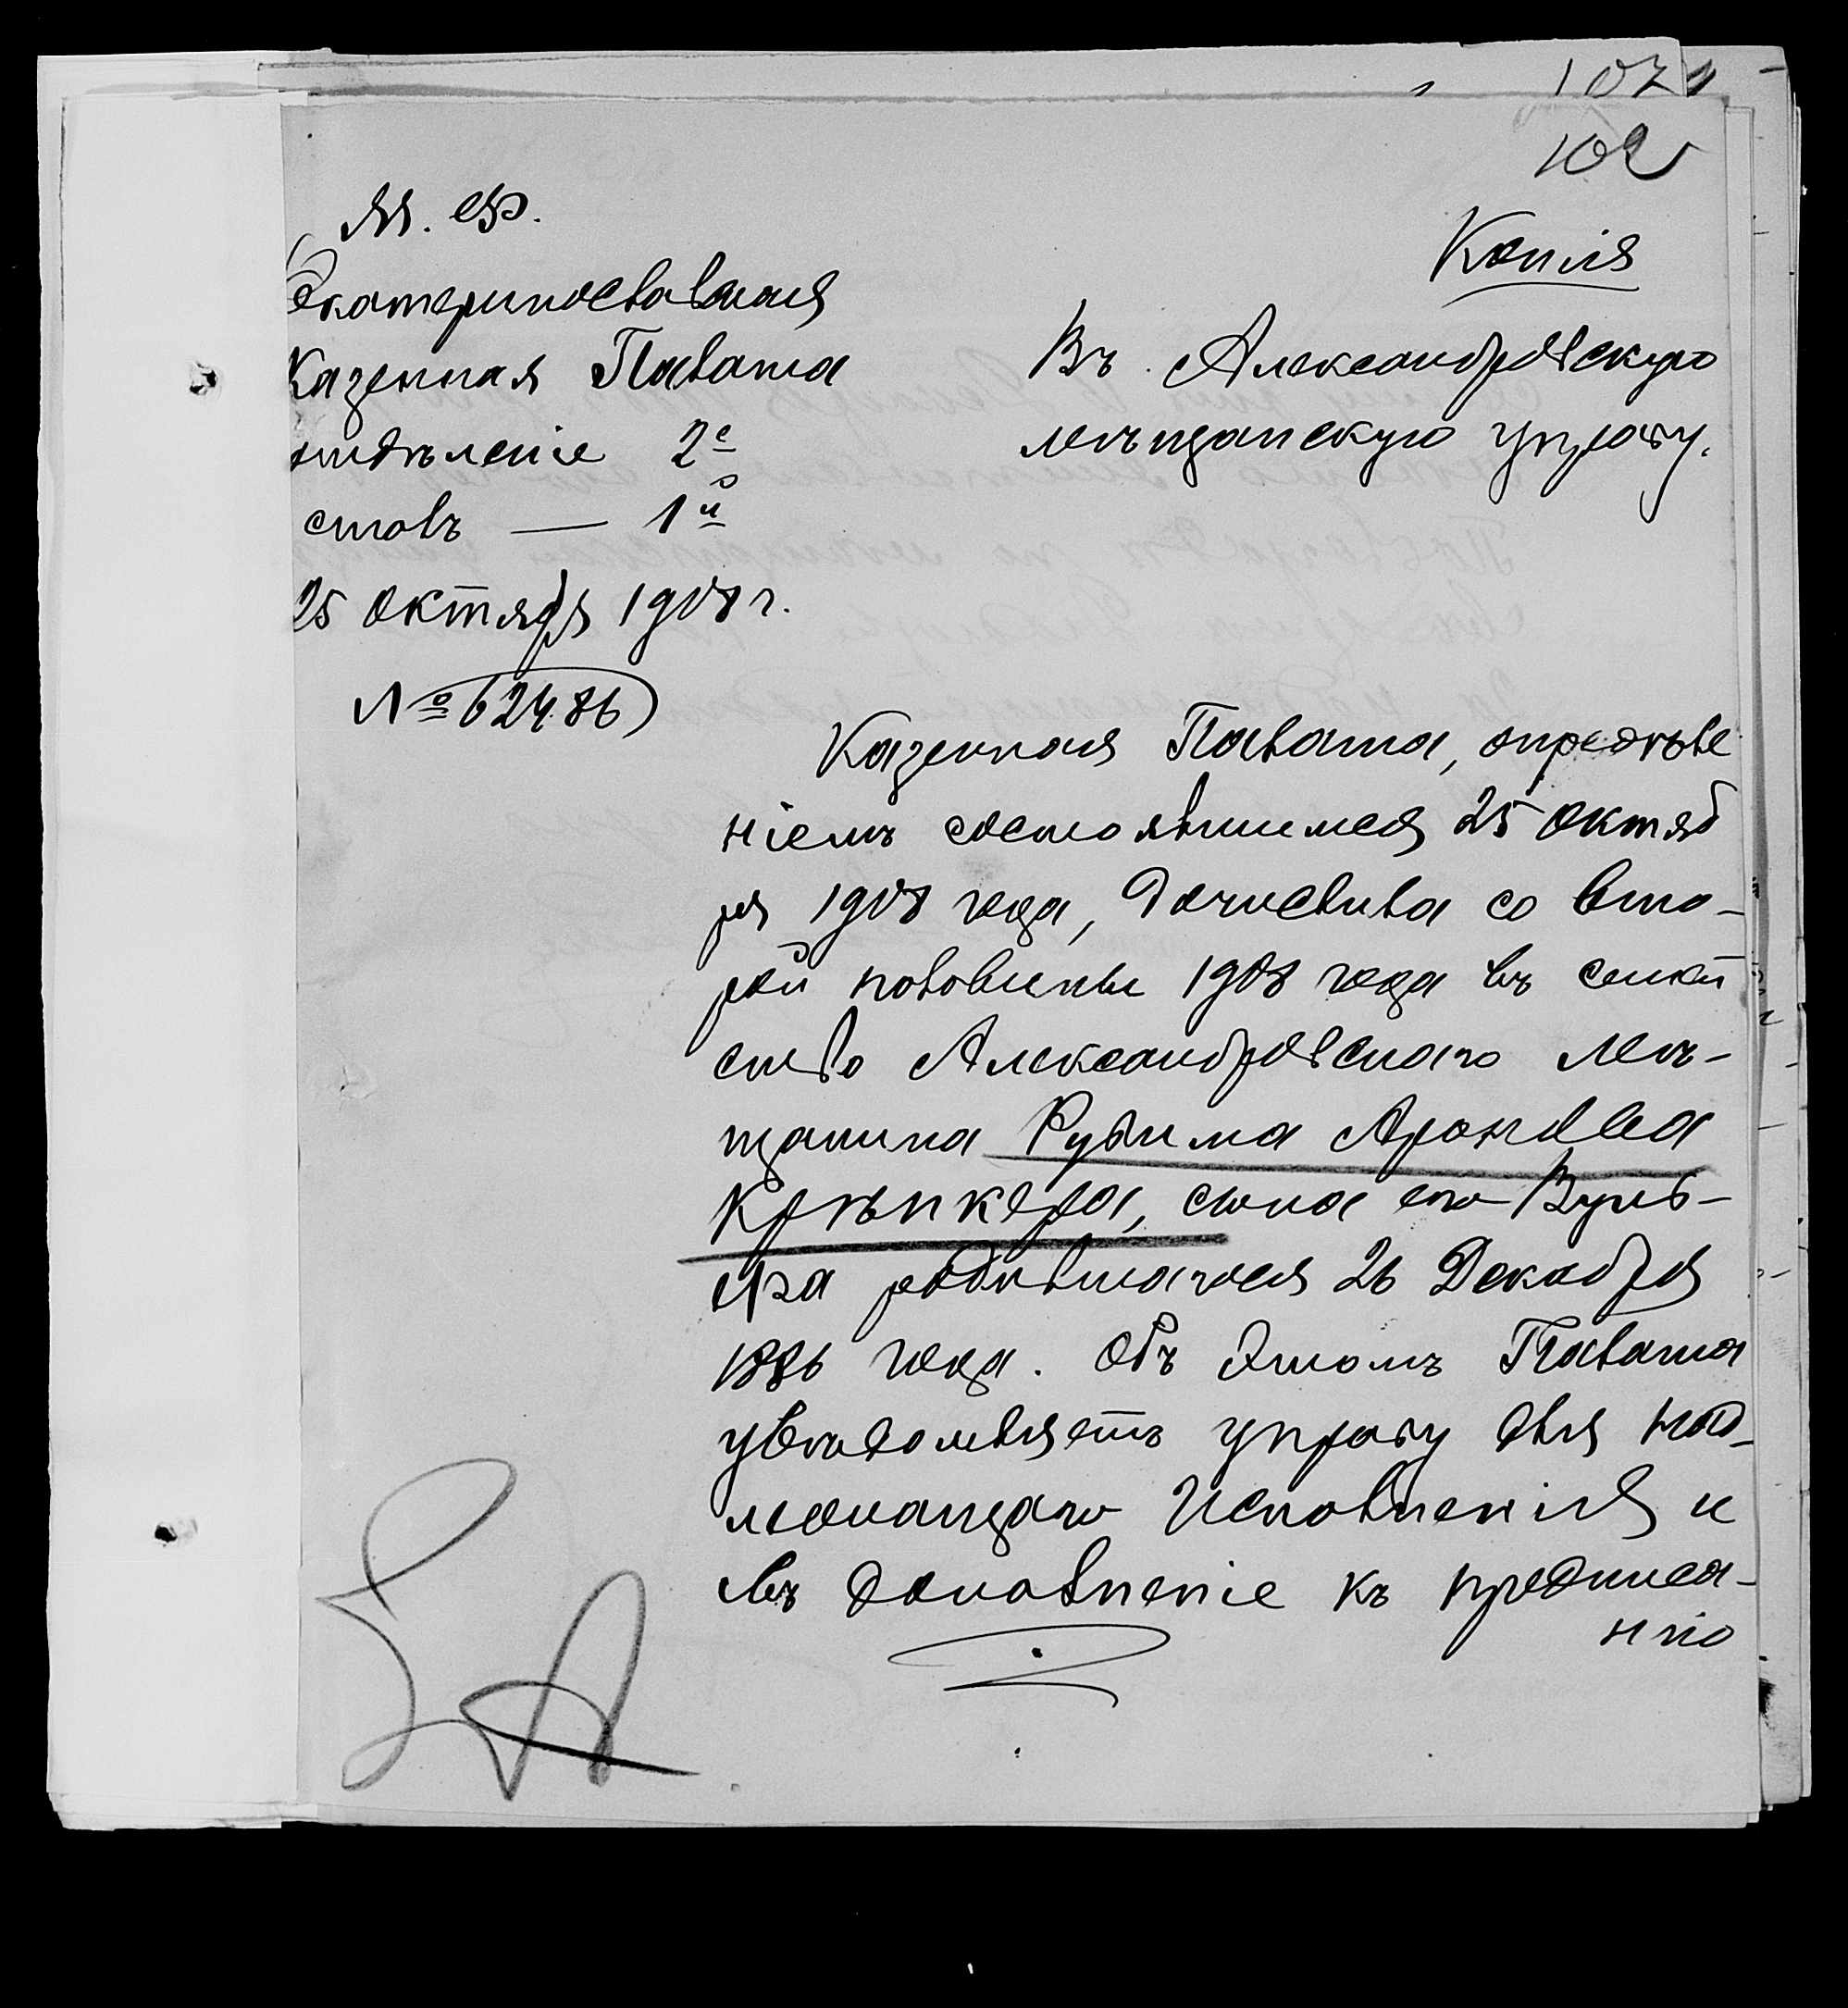 107
102
М. Ф.
Копія
Екатеринославская
Казенная Палата
отдѣленіе 2е
столъ — 1й
25 октября 1908 г.
№ 62486
Въ Александровскую
мѣщанскую управу.
Казенная Палата, опредѣле
ніемъ состоявшимся 25 октяб
ря 1908 года, Дочислила со вто-
рой половины 1908 года въ семей
ство Александровскаго мѣ-
щанина Рувима Аронова
Крѣпкера, сына его Вуль-
фа родившагося 26 Декабря
1886 года. Объ этомъ Палата
увѣдомляетъ управу для над-
лежащаго Исполненія и
въ дополненіе къ предписа-
нію